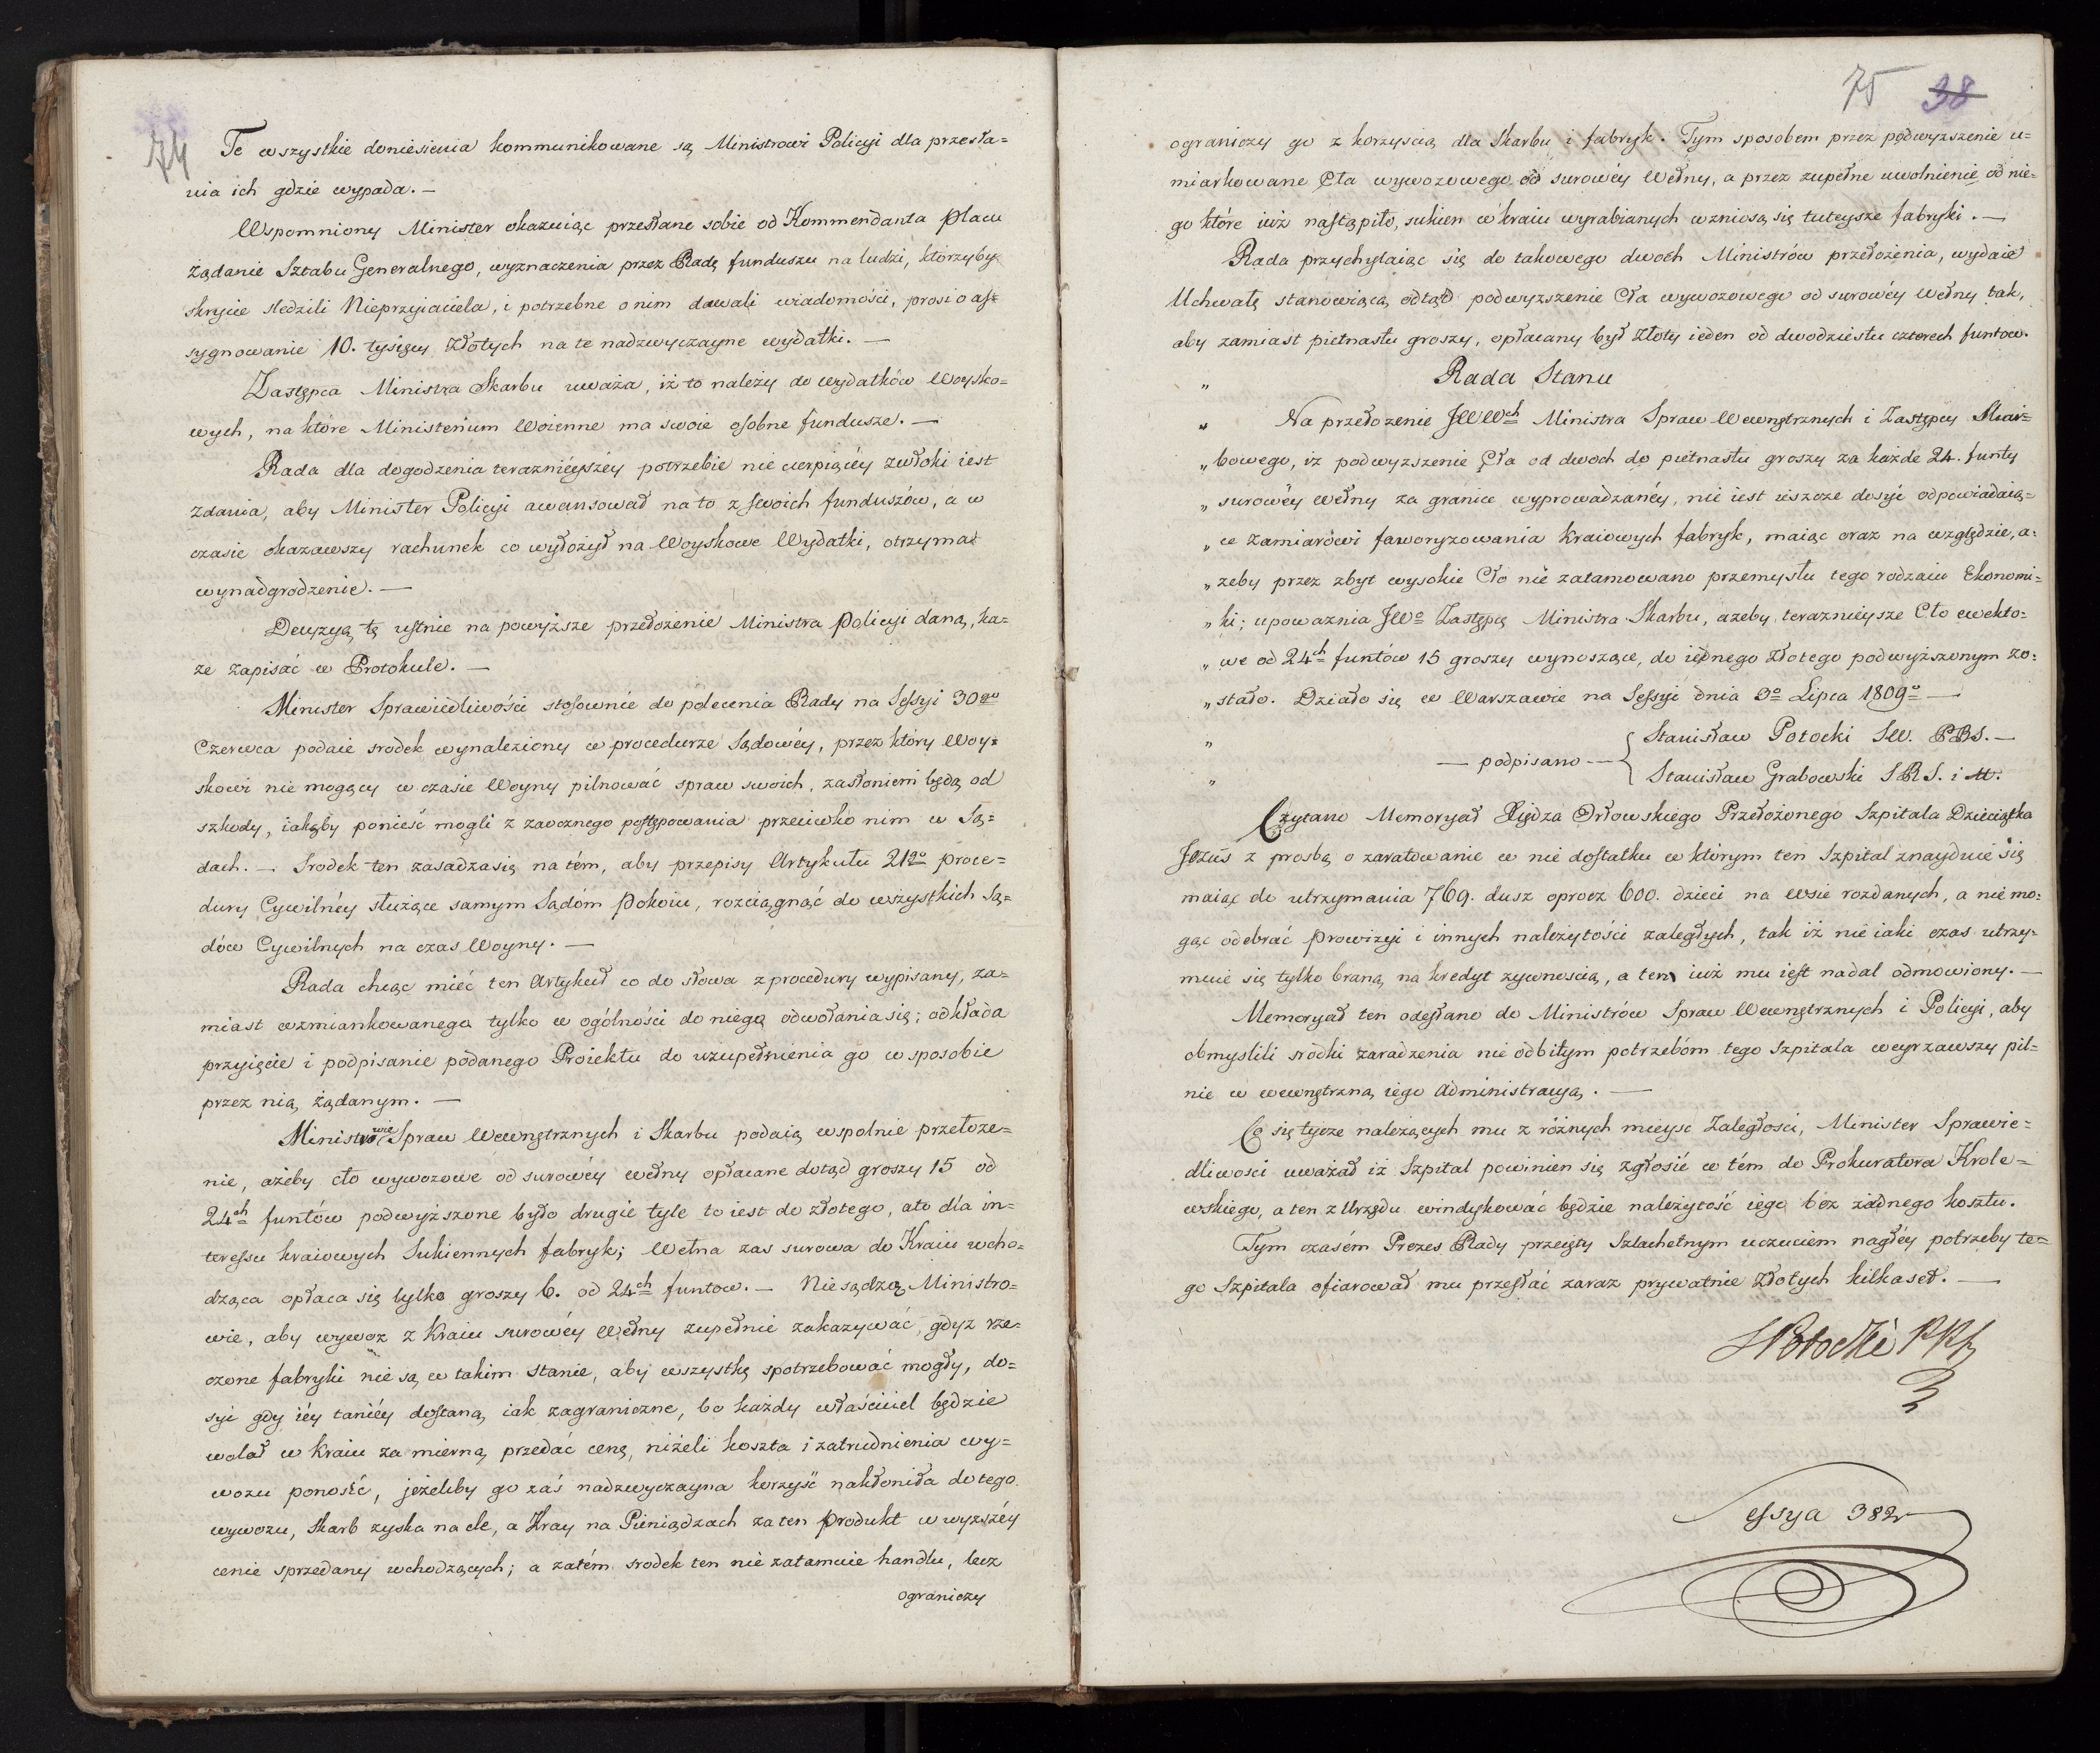 74
Te wszystkie doniesienia kommunikowane są Ministrowi Policyi dla przesła=
nia ich gdzie wypada. —
Wspomniony Minister okazuiąc przesłane sobie od Kommendanta placu
żądanie Sztabu Generalnego, wyznaczenia przez Radę funduszu na ludzi, którzyby
skrycie sledzili Nieprzyiaciela, i potrzebne o nim dawali wiadomości, prosi o as=
sygnowanie 10. tysięcy Złotych na te nadzwyczayne wydatki. —
Zastępca Ministra Skarbu uważa, iż to należy do wydatków Woysko=
wych, na które Ministerium Woienne ma swoie osobne fundusze. —
Rada dla dogodzenia teraznieyszéy potrzebie nie cierpiącéy zwłoki iest
zdania, aby Minister Policyi awansował na to z swoich funduszów, a w
czasie okazawszy rachunek co wyłożył na Woyskowe Wydatki, otrzymał
wynadgrodzenie. —
Decyzyą tę ustnie na powyższe przełożenie Ministra Policyi daną, ka=
że zapisać w Protokule. —
Minister Sprawiedliwości stosownie do polecenia Rady na Sessyi 30go
Czerwca podaie srodek wynaleziony w procedurze Sądowéy, przez który Woy=
skowi nie mogący w czasie Woyny pilnować spraw swoich, zasłonieni będą od
szkody, iakąby ponieść mogli z zaocznego postępowania przeciwko nim w Są=
dach. — Srodek ten zasadza się na tém, aby przepisy Artykułu 21go proce=
dury Cywilnéy służące samym Sądóm Pokoiu, rozciągnąć do wszystkich Są=
dów Cywilnych na czas Woyny. —
Rada chcąc mieć ten Artykuł co do słowa z procedury wypisany, za=
miast wzmiankowanego tylko w ogólności do niego odwołania się; odkłada
przyięcie i podpisanie podanego Proiektu do uzupełnienia go w sposobie
przez nią żądanym. —
Ministrowie Spraw Wewnętrznych i Skarbu podaią wspolnie przełoże=
nie, ażeby cło wywozowe od surowéy wełny opłacane dotąd groszy 15 od
24ch funtów podwyższone było drugie tyle to iest do złotego, a to dla in=
teressu kraiowych Sukiennych fabryk; Wełna zas surowa do Kraiu wcho=
dząca opłaca się tylko groszy 6. od 24ch funtow. — Nie sądzą Ministro=
wie, aby wywoz z Kraiu surowéy Wełny zupełnie zakazywać, gdyz rze=
czone fabryki nie są w takim stanie, aby wszystkę spotrzebować mogły, do=
syć gdy iéy taniéy dostaną iak zagraniczne, bo każdy właściciel będzie
wolał w kraiu za mierną przedać cenę, niżeli koszta i zatrudnienia wy=
wozu ponosić, jeżeliby go zaś nadzwyczayna korzyść nakłoniła do tego
wywozu, Skarb zyska na cle, a Kray na Pieniądzach za ten produkt w wyższéy
cenie sprzedany wchodzących; a zatém srodek ten nie zatamuie handlu, lecz
ograniczy
75 38
ograniczy go z korzyscią dla Skarbu i fabryk. Tym sposobem przez podwyzszenie u=
miarkowane Cła wywozowego od surowéy Wełny, a przez zupełne uwolnienie od nie=
go które iuż nastąpiło, sukien w kraiu wyrabianych wzniosą się tuteysze fabryki. —
Rada przychylaiąc się do takowego dwoch Ministrów przełożenia, wydaie
Uchwałę stanowiącą odtąd podwyzszenie Cła wywozowego od surowéy Wełny tak,
aby zamiast pietnastu groszy, opłacany był Złoty ieden od dwodziestu czterech funtow.
„ Rada Stanu
„ Na przełozenie JWWch Ministra Spraw Wewnętrznych i Zastępcy Skar=
„ bowego, iz podwyzszenie Cła od dwoch do pietnastu groszy za każde 24. funty
„ surowéy wełny za granice wyprowadzanéy, nie iest ieszcze dosyć odpowiadaią=
„ ce zamiarowi faworyzowania kraiowych fabryk, maiąc oraz na względzie, a=
„ żeby przez zbyt wysokie Cło nie zatamowano przemysłu tego rodzaiu Ekonomi=
„ ki; upoważnia JWo Zastępcę Ministra Skarbu, azeby teraznieysze Cło wekto=
„ we od 24ch funtów 15 groszy wynoszące, do iednego Złotego podwyższonym zo=
„ stało. Działo się w Warszawie na Sessyi dnia 3o Lipca 1809o —
„ Stanisław Potocki SW. PRS. —
— podpisano —
„ Stanisław Grabowski SRS. i M.
Czytano Memoryał Xiędza Orłowskiego Przełożonego Szpitala Dzieciątka
Jezus z prosbą o zaratowanie w nie dostatku w którym ten Szpital znayduie się
maiąc do utrzymania 769. dusz oprocz 600. dzieci na wsie rozdanych, a nie mo=
gąc odebrać prowizyi i innych należytości zaległych, tak iż nie iaki czas utrzy=
muie się tylko braną na kredyt zywnoscią, a ten iuż mu iest nadal odmowiony. —
Memoryał ten odesłano do Ministrów Spraw Wewnętrznych i Policyi, aby
obmyslili srodki zaradzenia nie odbitym potrzebóm tego Szpitala weyrzawszy pil=
nie w wewnętrzną iego Administracyą. —
Co się tycze nalezących mu z różnych mieysc Zaległosci, Minister Sprawie=
dliwosci uważał iż Szpital powinien się zgłosić w tém do Prokuratora Krole=
wskiego, a ten z Urzędu windykować będzie należytość iego bez żadnego kosztu.
Tym czasém Prezes Rady przeięty Szlachetnym uczuciem nagłéy potrzeby te=
go Szpitala ofiarował mu przesłać zaraz prywatnie Złotych kilkaset. —
SPotocki PRS
Sessya 382